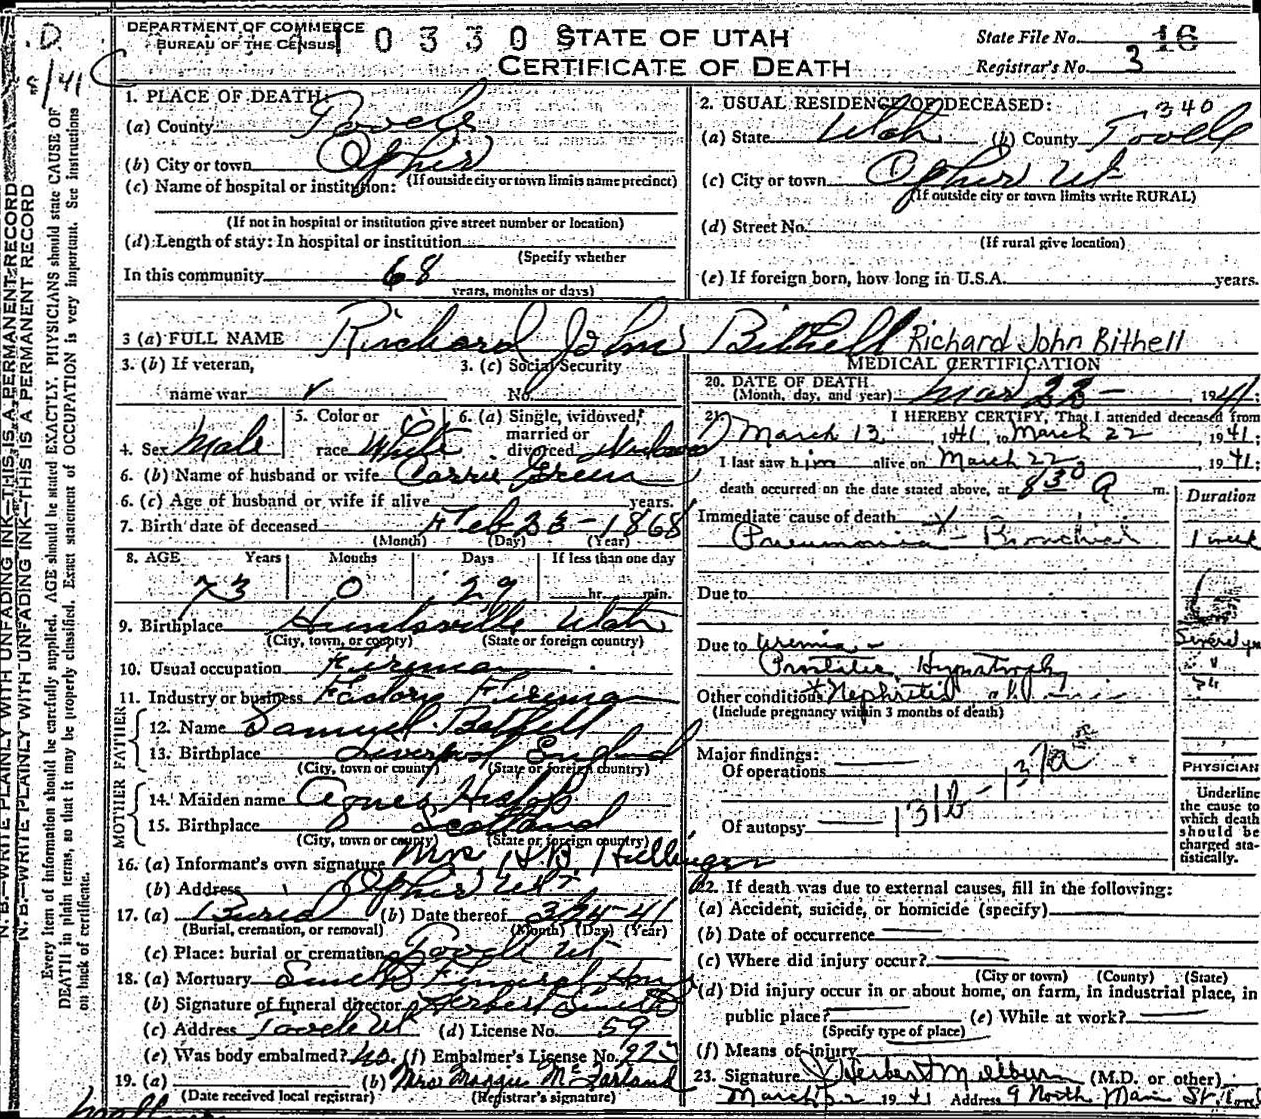 D.
5/41
N. B.—WRITE PLAINLY WITH UNFADING INK—THIS IS A PERMANENT RECORD
N. B.—WRITE PLAINLY WITH UNFADING INK—THIS IS A PERMANENT RECORD
Every item of information should be carefully supplied. AGE should be stated EXACTLY. PHYSICIANS should state CAUSE OF
DEATH in plain terms, so that it may be properly classified. Exact statement of OCCUPATION is very important. See Instructions
on back of certificate.
DEPARTMENT OF COMMERCE
BUREAU OF THE CENSUS
10330
STATE OF UTAH
CERTIFICATE OF DEATH
State File No. 16
Registrar's No. 3
1. PLACE OF DEATH:
(a) County Tooele
(b) City or town Ophir
(If outside city or town limits name precinct)
(c) Name of hospital or institution:
(If not in hospital or institution give street number or location)
(d) Length of stay: In hospital or institution
(Specify whether
In this community 68
years, months or days)
2. USUAL RESIDENCE OF DECEASED:
340
(a) State Utah (b) County Tooele
(c) City or town Ophir Ut
(If outside city or town limits write RURAL)
(d) Street No.
(If rural give location)
(e) If foreign born, how long in U.S.A. years.
3 (a) FULL NAME Richard John Bithell Richard John Bithell
3. (b) If veteran,
name war
3. (c) Social Security
No.
4. Sex Male
5. Color or
race White
6. (a) Single, widowed,
married or
divorced Widowed
6. (b) Name of husband or wife Carrie Green
6. (c) Age of husband or wife if alive years.
7. Birth date of deceased Feb 23 - 1868
(Month) (Day) (Year)
8. AGE Years Months Days If less than one day
73 0 29 hr. min.
9. Birthplace Huntsville Utah
(City, town, or county) (State or foreign country)
10. Usual occupation Fireman
11. Industry or business Factory Fireman
FATHER
12. Name Samuel Bithell
13. Birthplace Liverpool England
(City, town or county) (State or foreign country)
MOTHER
14. Maiden name Agnes Hislop
15. Birthplace Scotland
(City, town or county) (State or foreign country)
16. (a) Informant's own signature Mrs
(b) Address Ophir Ut.
17. (a) Burial (b) Date thereof 3-25-41
(Burial, cremation, or removal) (Month) (Day) (Year)
(c) Place: burial or cremation Tooele Ut
18. (a) Mortuary Smith Funeral Home
(b) Signature of funeral director Herbert Smith
(c) Address Tooele Ut (d) License No. 59
(e) Was body embalmed? (f) Embalmer's License No.
19. (a) (b) Mrs Maggie McFarland
(Date received local registrar) (Registrar's signature)
MEDICAL CERTIFICATION
20. DATE OF DEATH
(Month, day, and year) Mar , 1941;
21. I HEREBY CERTIFY, That I attended deceased from
March 13, 1941, to March 22, 1941;
I last saw him alive on March 22, 1941;
death occurred on the date stated above, at 830 A m.
Duration
Immediate cause of death
Pneumonia - Bronchial 1 week
Due to
Due to Uremia -
Several yr
Prostatic Hypertrophy
Other conditions Nephritis
(Include pregnancy within 3 months of death)
Major findings:
Of operations
131b - 131a
Of autopsy
PHYSICIAN
Underline
the cause to
which death
should be
charged sta-
tistically.
22. If death was due to external causes, fill in the following:
(a) Accident, suicide, or homicide (specify)
(b) Date of occurrence
(c) Where did injury occur?
(City or town) (County) (State)
(d) Did injury occur in or about home, on farm, in industrial place, in
public place? (e) While at work?
(Specify type of place)
(f) Means of injury
23. Signature Herbert Milburn (M.D. or other)
March 1941 Address 9 North Main St.